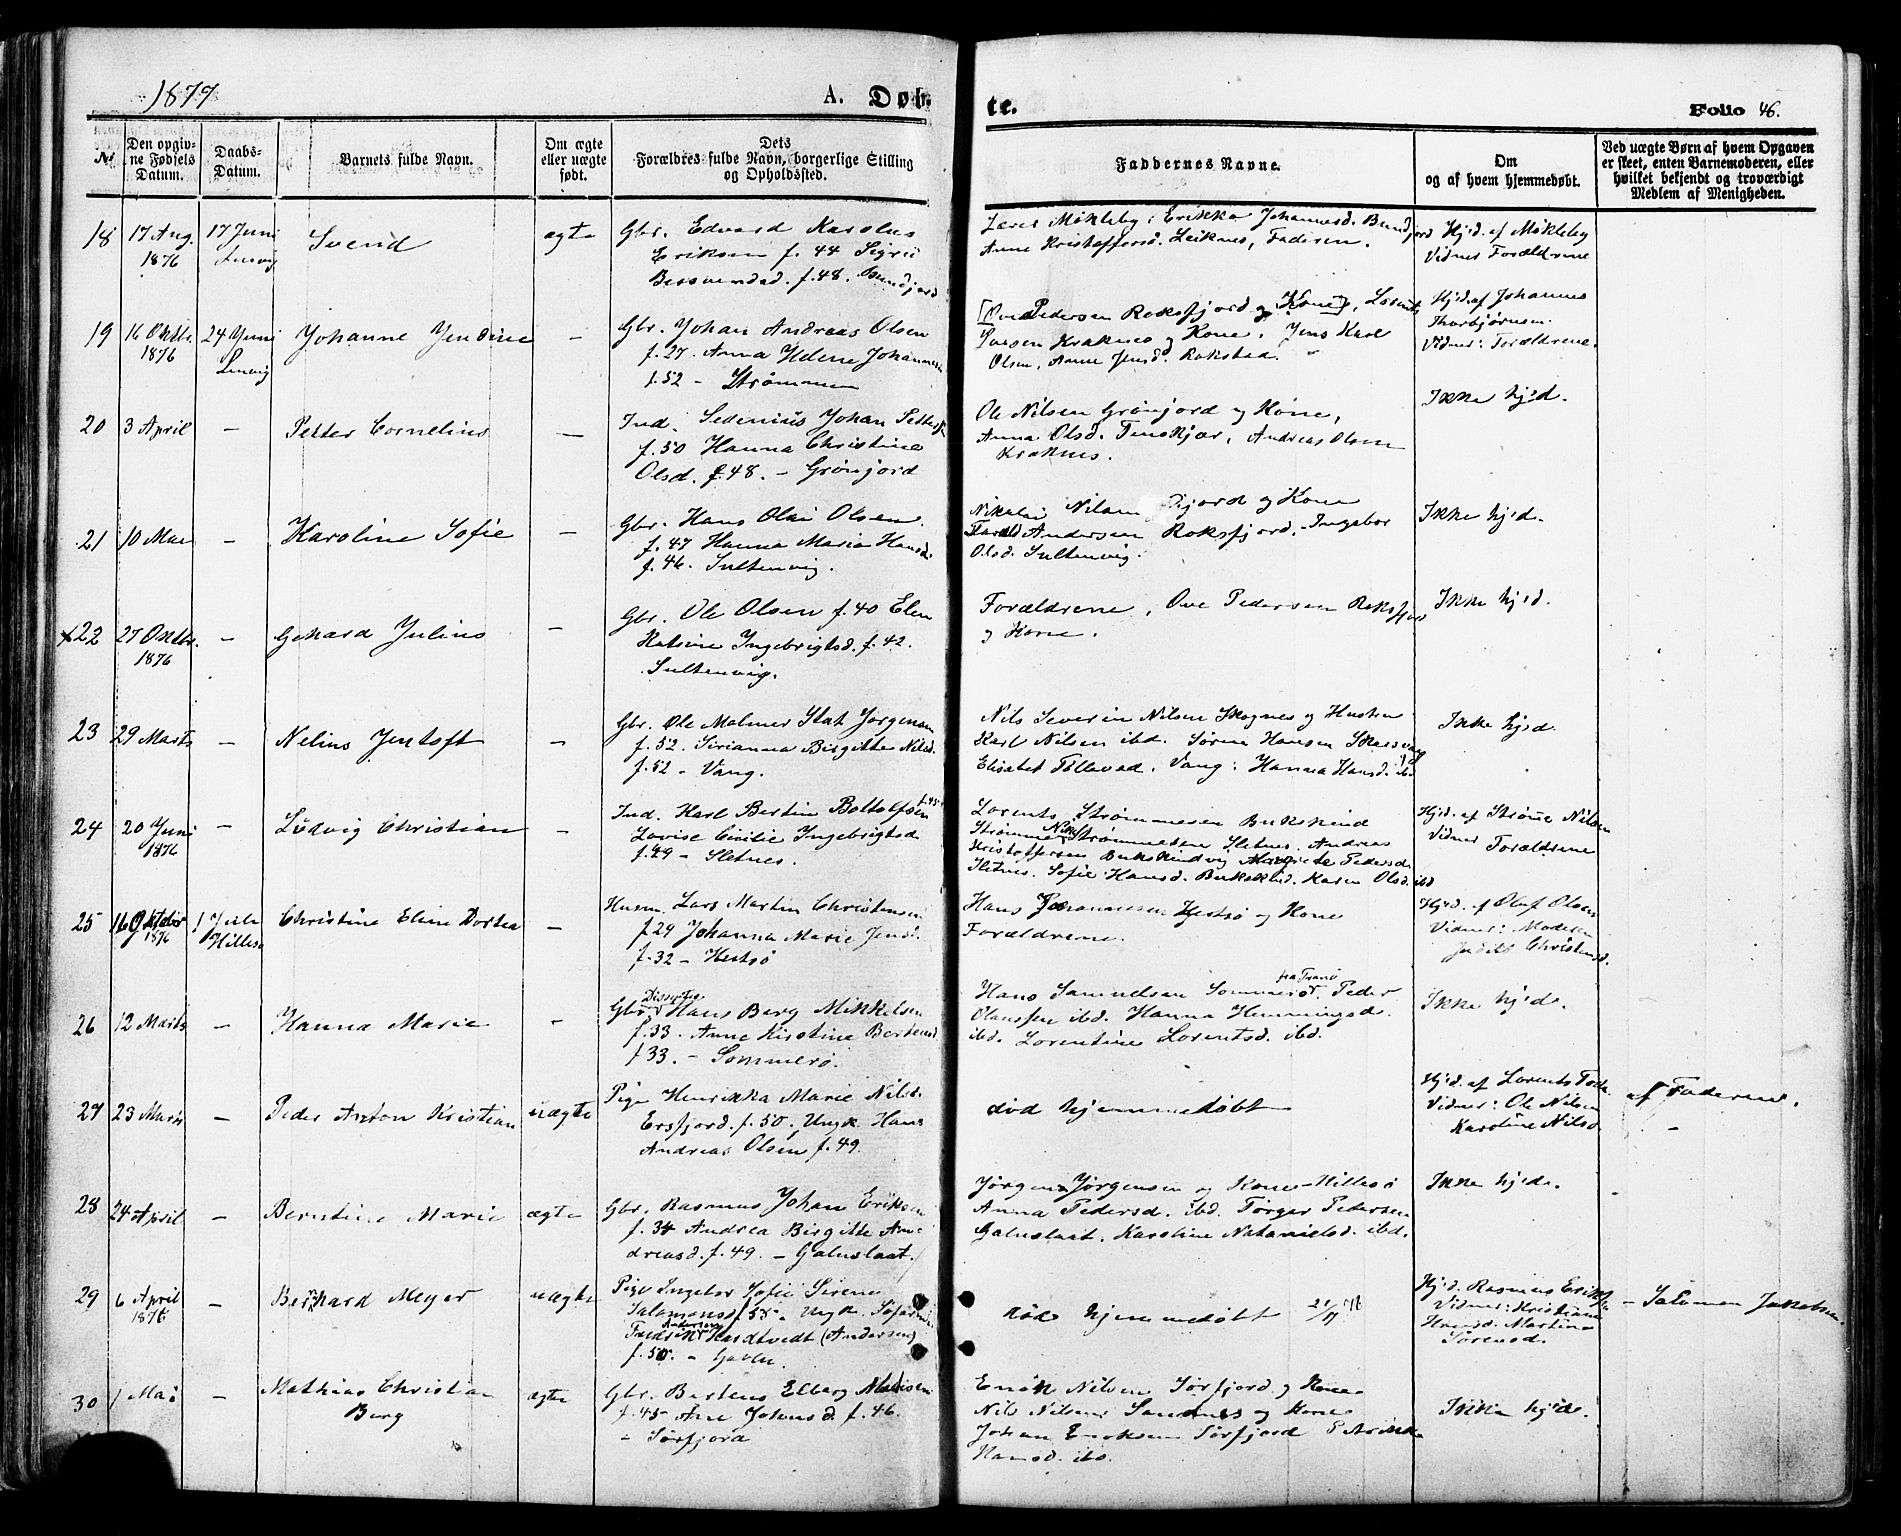 1877
A. Døb-
te.
Folio 46.
№
Den opgiv-
ne Fødsels
Datum.
Daabs-
Datum.
Barnets fulde Navn.
Om ægte
eller uægte
født.
Dets
Forældres fulde Navn, borgerlige Stilling
og Opholdssted.
Faddernes Navne.
Om
og af hvem hjemmedøbt.
Ved uægte Børn af hvem Opgaven
er skeet, enten Barnemoderen, eller
hvilket bekjendt og troværdigt
Medlem af Menigheden.
18 17 Aug. 1876
17 Juni Lenvig
Svend
ægte
Gbr. Edvard Karolus
Eriksen f. 44 Sigrii
f. 48.
Lærer Møkleby; Erikka Johannesd.
Anne Kristoffersd. Leiknes, Faderen.
Hjd. af Møkleby
Vidner Forældrene
19 16 Oktbr. 1876
24 Juni Lenvig
Johanne Jendine
–
Gbr. Johan Andreas Olsen
f. 27. Anna Helene
f. 52 – Strømmen
[Ove Pedersen Roksfjord og Kone],
Kraknes og Kone. Jens Karl
Olsen, Anne Jensd. Rokstad.
Hjd. af Johannes
Thorbjørnsen.
Vidner: Forældrene.
20 3 April
–
Petter Cornelius
–
Ind. Sedenius Johan
f. 50 Hanna Christine
Olsd. f. 48. – Grønjord
Ole Nilsen Grønjord og Kone,
Anna Olsd. Finskjær, Andreas Olsen
Kraknes.
Ikke hjd.
21 10 Mai
–
Karoline Sofie
–
Gbr. Hans Olai Olsen.
f. 47 Hanna Maria Hansd.
f. 46. Sultenvig.
Nikolai Nilsen og Kone
Andersen Roksfjord. Ingebor
Olsd. Sultenvig.
Ikke hjd.
x22 27 Oktbr. 1876
–
Gehard Julius
–
Gbr. Ole Olsen f. 40 Elen
Katrine Ingebrigtsd. f. 42.
Sultenvig.
Forældrene, Ove Pedersen Roksfjord
og Kone.
Ikke hjd.
23 29 Marts
–
Nelius Jentoft
–
Gbr. Ole Molmer Stat Jørgensen
f. 52. Sirianna Birgitte Nilsd.
f. 52 – Vang.
Nils Severin Nilsen Skognes og Hustru
Karl Nilsen ibd. Sørine Hansen
Elisabet Tollevsd. Vang; Hanna Hansd. ibd
Ikke hjd.
24 20 Juni 1876
–
Ludvig Christian
–
Ind. Karl Bertin Boltolfsen f. 45
Lovise Cecilie Ingebrigtsd
f. 49 – Sletnes.
Lorents Strømmesen Bukskind
Strømme Strømmesen Sletnes. Andreas
Kristoffersen Bukskindvig Margrete Pedersd.
Sletnes. Sofie Hansd. Bukskind. Karen Olsd. ibd
Hjd. af Strøme Nilsen
Vidner Forældrene
25 16 Oktober 1876
1 Juli Hillesø
Christine Eline Dortea
–
Husm. Lars Martin Christensen
f. 29 Johanna Marie Jensd.
f. 32 – Hestsø
Hans Johannesen Hestsø og Kone
Forældrene.
Hjd. af Oluf Olsen
Vidner: Moderen
Judith Christensd.
26 12 Marts
–
Hanna Marie
–
Gbr. Hans Berg Mikkelsen
f. 33. Anne Kirstine
f. 33. – Sommerø.
Hans Samuelsen Sommerø fra Tranø. Peder
ibd. Hanna Hemmingsd.
ibd. Lorentine Lorentsd. ibd.
Ikke hjd.
27 23 Marts
–
Peder Anton Kristian
uægte
Pige Henrikka Marie Nilsd.
Ersfjord. f. 50, Ungk. Hans
Andreas Olsen f. 49.
død hjemmedøbt
Hjd. af Lorents
Vidner: Ole Nilsen
Karoline Nilsd.
af Faderen.
28 24 April
–
Berntine Marie
ægte
Gbr. Rasmus Johan Eriksen
f. 34 Andrea Birgitte An-
dreasd. f. 49. – Galnslaat.
Jørgen Jørgensen og Kone Hillesø
Anna Pedersd. ibd. Torger Pedersen
Galnslaat. Karoline Natanielsd. ibd.
Ikke hjd.
29 6 April 1876
–
Bernhard Meyer
uægte
Pige Ingebor Sofie Sirene
Salomonsd. f. 55 – Ungk.
Fredrik Andersen Hardtvedt (Andersen)
f. 50. –
død hjemmedøbt
Hjd. Rasmus Eriksen
Vidner: Kristiane
Hansd. Martine
Sørensd.
– Salomon Jakobsen
30 1 Mai
–
Mathias Christian
Berg
ægte
Gbr. Bertens Elberg
f. 45 Ane Johnsd. f. 46.
– Sørfjord
Enok Nilsen Sørfjord og Kone
Nils Nilsen og Kone
Johan Enoksen Sørfjord
Hansd. ibd.
Ikke hjd.